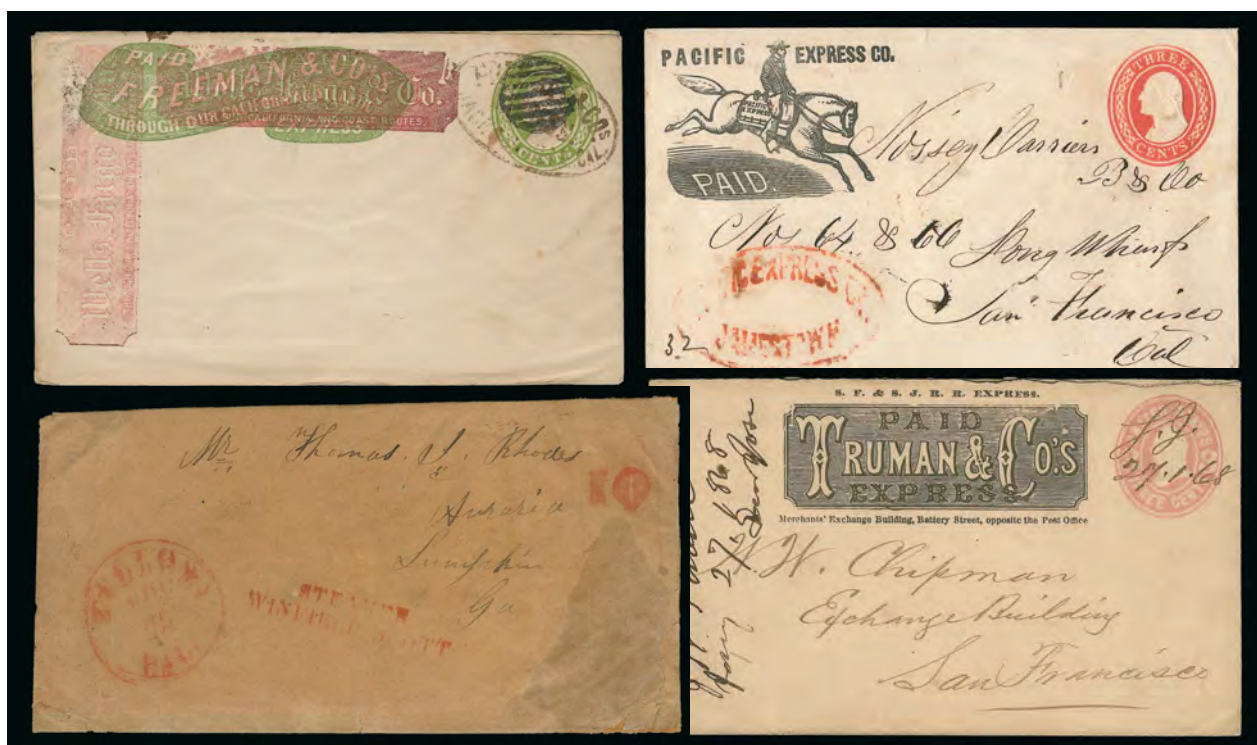 PAID
FREEMAN & CO'S
Co.
THROUGH OUR CALIFORNIA AND COAST ROUTES.
EXPRESS
Wells, Fargo
CENTS
CAL.
PACIFIC EXPRESS CO.
PACIFIC EXPRESS
PAID.
THREE
CENTS
Nos 64 & 66 Long Wharf
San Francisco
Cal
EXPRESS
JAMESTOWN
32
Mr Thomas. J. Rhodes
Auraria
Lumpkin
Ga
10
STEAMER
WINFIELD SCOTT
CAL.
S. F. & S. J. R. R. EXPRESS.
PAID
TRUMAN & CO.'S
EXPRESS
Merchants' Exchange Building, Battery Street, opposite the Post Office
S.J.
27.1.68
W. Chipman
Exchange Building
San Francisco
San Jose
27
1868